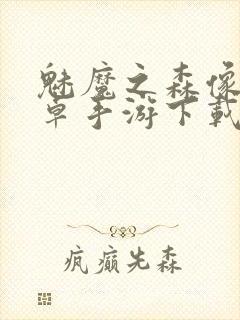 魅魔之森像
卓手游下载
疯癫先森